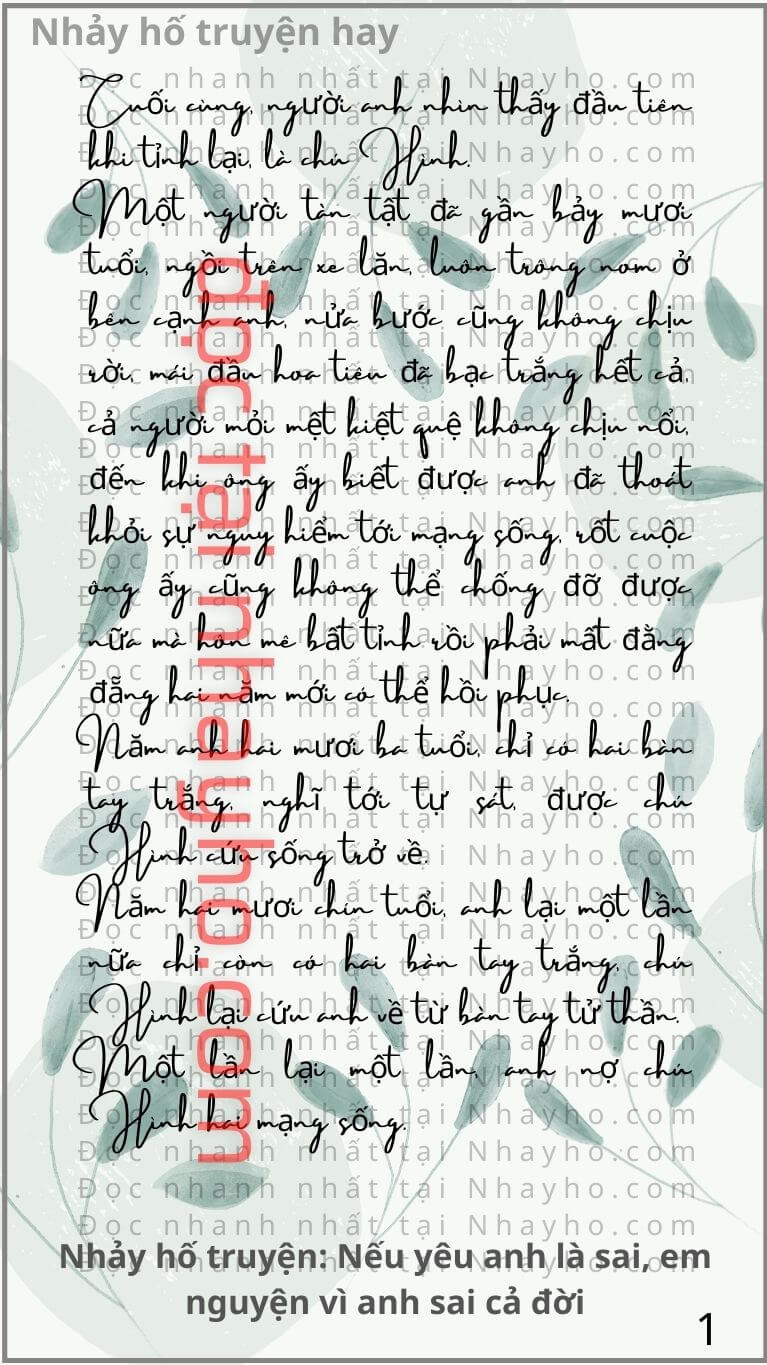 Nhảy hố truyện hay
Cuối cùng, người anh nhìn thấy đầu tiên
khi tỉnh lại, là chú Hình.
Một người tàn tật đã gần bảy mươi
tuổi, ngồi trên xe lăn, luôn trông nom ở
bên cạnh anh, nửa bước cũng không chịu
rời, mái đầu hoa tiêu đã bạc trắng hết cả,
cả người mỏi mệt kiệt quệ không chịu nổi,
đến khi ông ấy biết được anh đã thoát
khỏi sự nguy hiểm tới mạng sống, rốt cuộc
ông ấy cũng không thể chống đỡ được
nữa mà hôn mê bất tỉnh rồi phải mất đằng
đẵng hai năm mới có thể hồi phục.
Năm anh hai mươi ba tuổi, chỉ có hai bàn
tay trắng, nghĩ tới tự sát, được chú
Hình cứu sống trở về.
Năm hai mươi chín tuổi, anh lại một lần
nữa chỉ còn có hai bàn tay trắng, chú
Hình lại cứu anh về từ bàn tay tử thần.
Một lần lại một lần, anh nợ chú
Hình hai mạng sống.
đọc tại nhayho.com
Đọc nhanh nhất tại Nhayho.com
Nhảy hố truyện: Nếu yêu anh là sai, em
nguyện vì anh sai cả đời
1